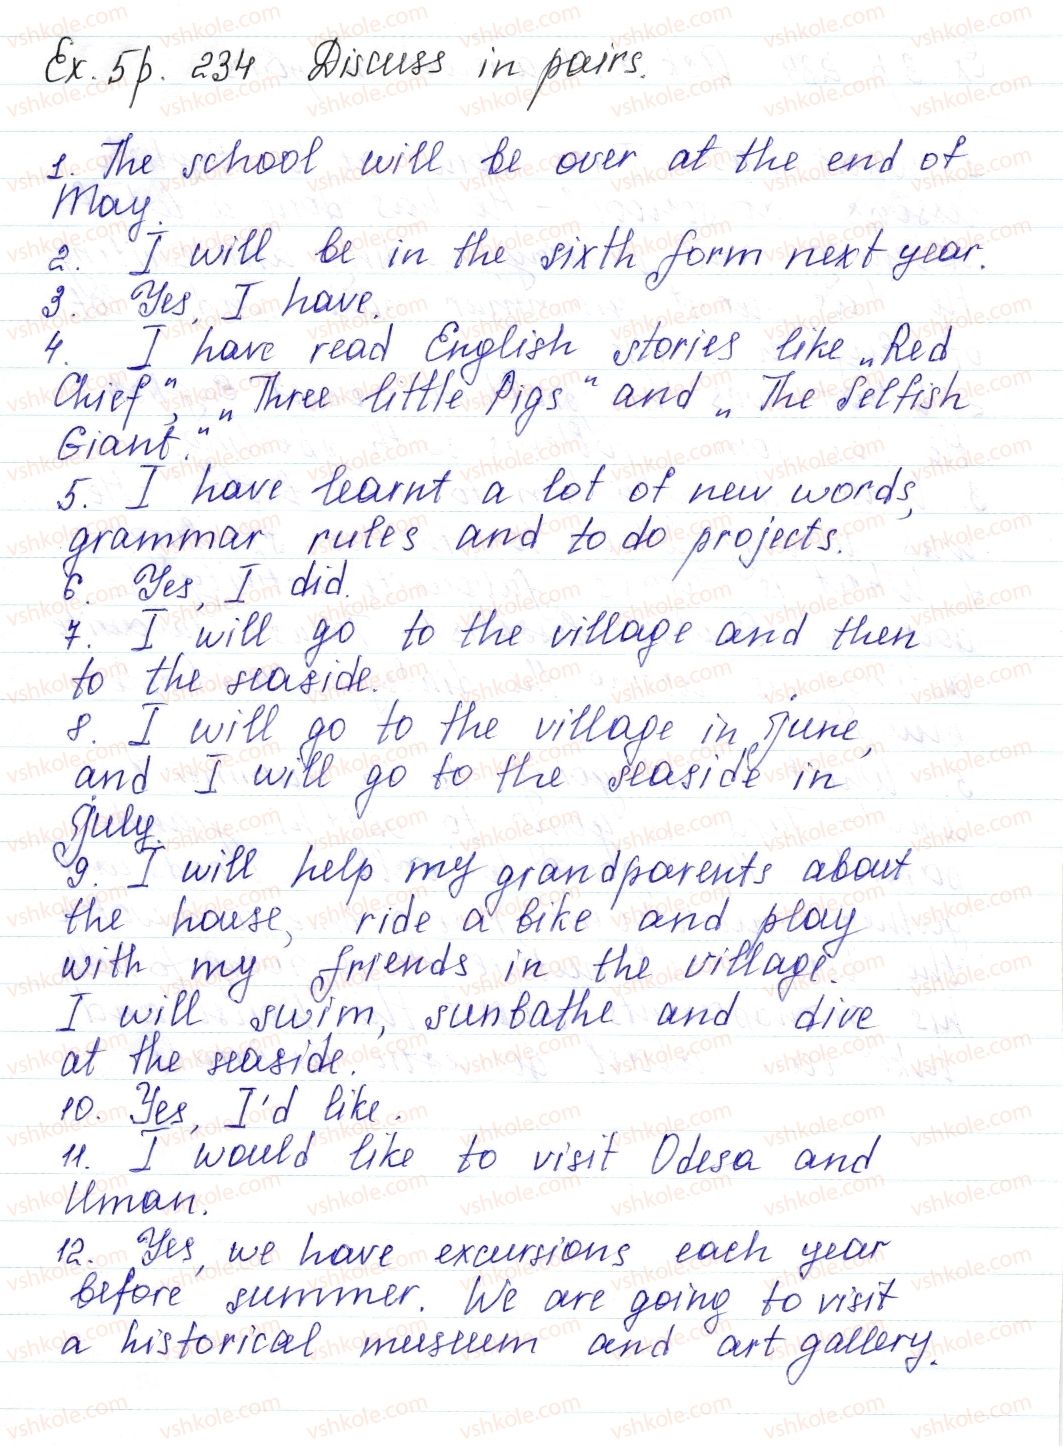 Ex. 5 p. 234 Discuss in pairs.
1. The school will be over at the end of
May.
2. I will be in the sixth form next year.
3. Yes, I have.
4. I have read English stories like „Red
Chief", „Three little Pigs" and „The Selfish
Giant."
5. I have learnt a lot of new words,
grammar rules and to do projects.
6. Yes, I did.
7. I will go to the village and then
to the seaside.
8. I will go to the village in june,
and I will go to the seaside in
july.
9. I will help my grandparents about
the house, ride a bike and play
with my friends in the village.
I will swim, sunbathe and dive
at the seaside.
10. Yes, I'd like.
11. I would like to visit Odesa and
Uman.
12. Yes, we have excursions each year
before summer. We are going to visit
a historical museum and art gallery.
vshkole.com